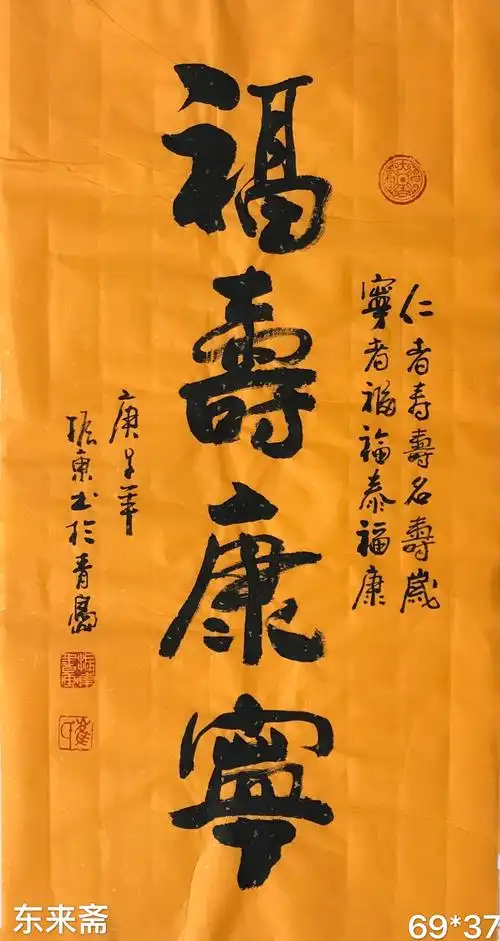 福壽康寧
仁者寿壽名壽歲
寧者福福泰福康
庚子年
振東书於青島
东来斋
69*37